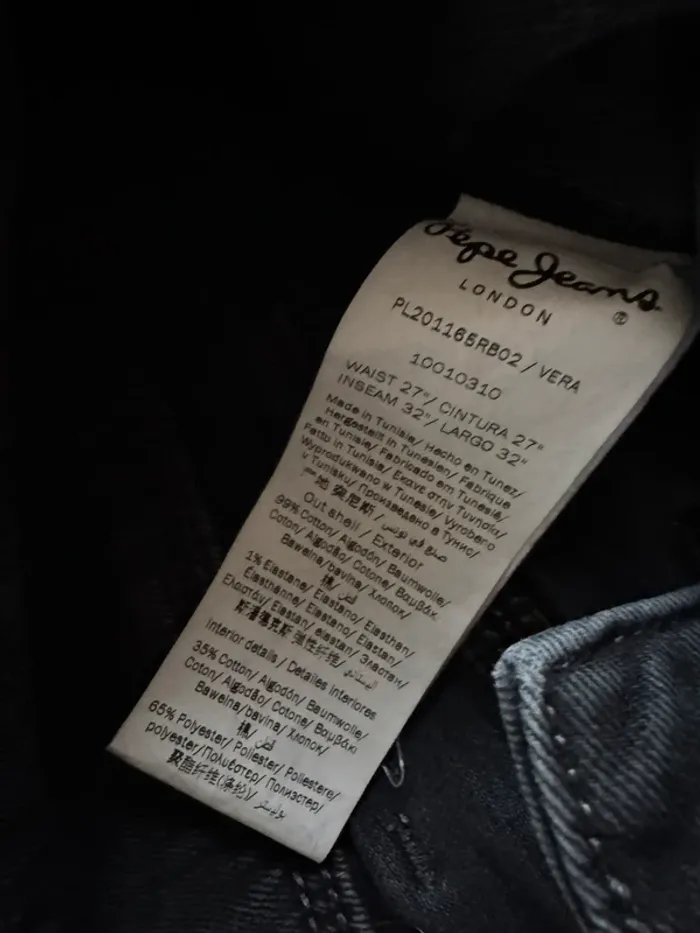 Pepe Jeans
LONDON
®
PL201165RB02 / VERA
10010310
WAIST 27"/ CINTURA 27"
INSEAM 32"/ LARGO 32"
Made in Tunisie/ Hecho en Tunez/
Hergestellt in Tunesien/ Fabrique
en Tunisie/ Fabricado em Tunesië/
Fatto in Tunisie/ Εκανε στην Τυνησία/
Wyprodukowano w Tunesie/ Vyrobeno
v Tunisku/ Произведено в Тунис/
地 突尼斯/ صنع في تونس
Out shell / Exterior
99% Cotton/ Algodón/ Baumwolle/
Coton/ Algodão/ Cotone/ Βαμβάκι
Bawelna/bavlna/ Хлопок/
棉/ قطن/
1% Elastane/ Elastano/ Elasthan/
Élasthanne/ Elastano/ Elastan/
Ελαστάν/ Elastan/ elastan/ Эластан/
斯潘德克斯 弹性纤维/
Interior details / Detalles interiores
35% Cotton/ Algodón/ Baumwolle/
Coton/ Algodão/ Cotone/ Βαμβάκι
Bawelna/bavlna/ Хлопок/
棉/ قطن/
65% Polyester/ Poliester/ Poliestere/
polyester/Πολυέστερ/ Полиэстер/
聚酯纤维(涤纶)/ بوليستر